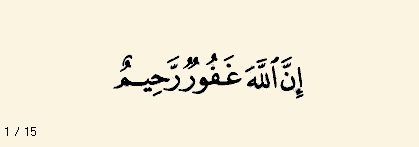 إِنَّ ٱللَّهَ غَفُورٌ رَّحِيمٌ
1 / 15